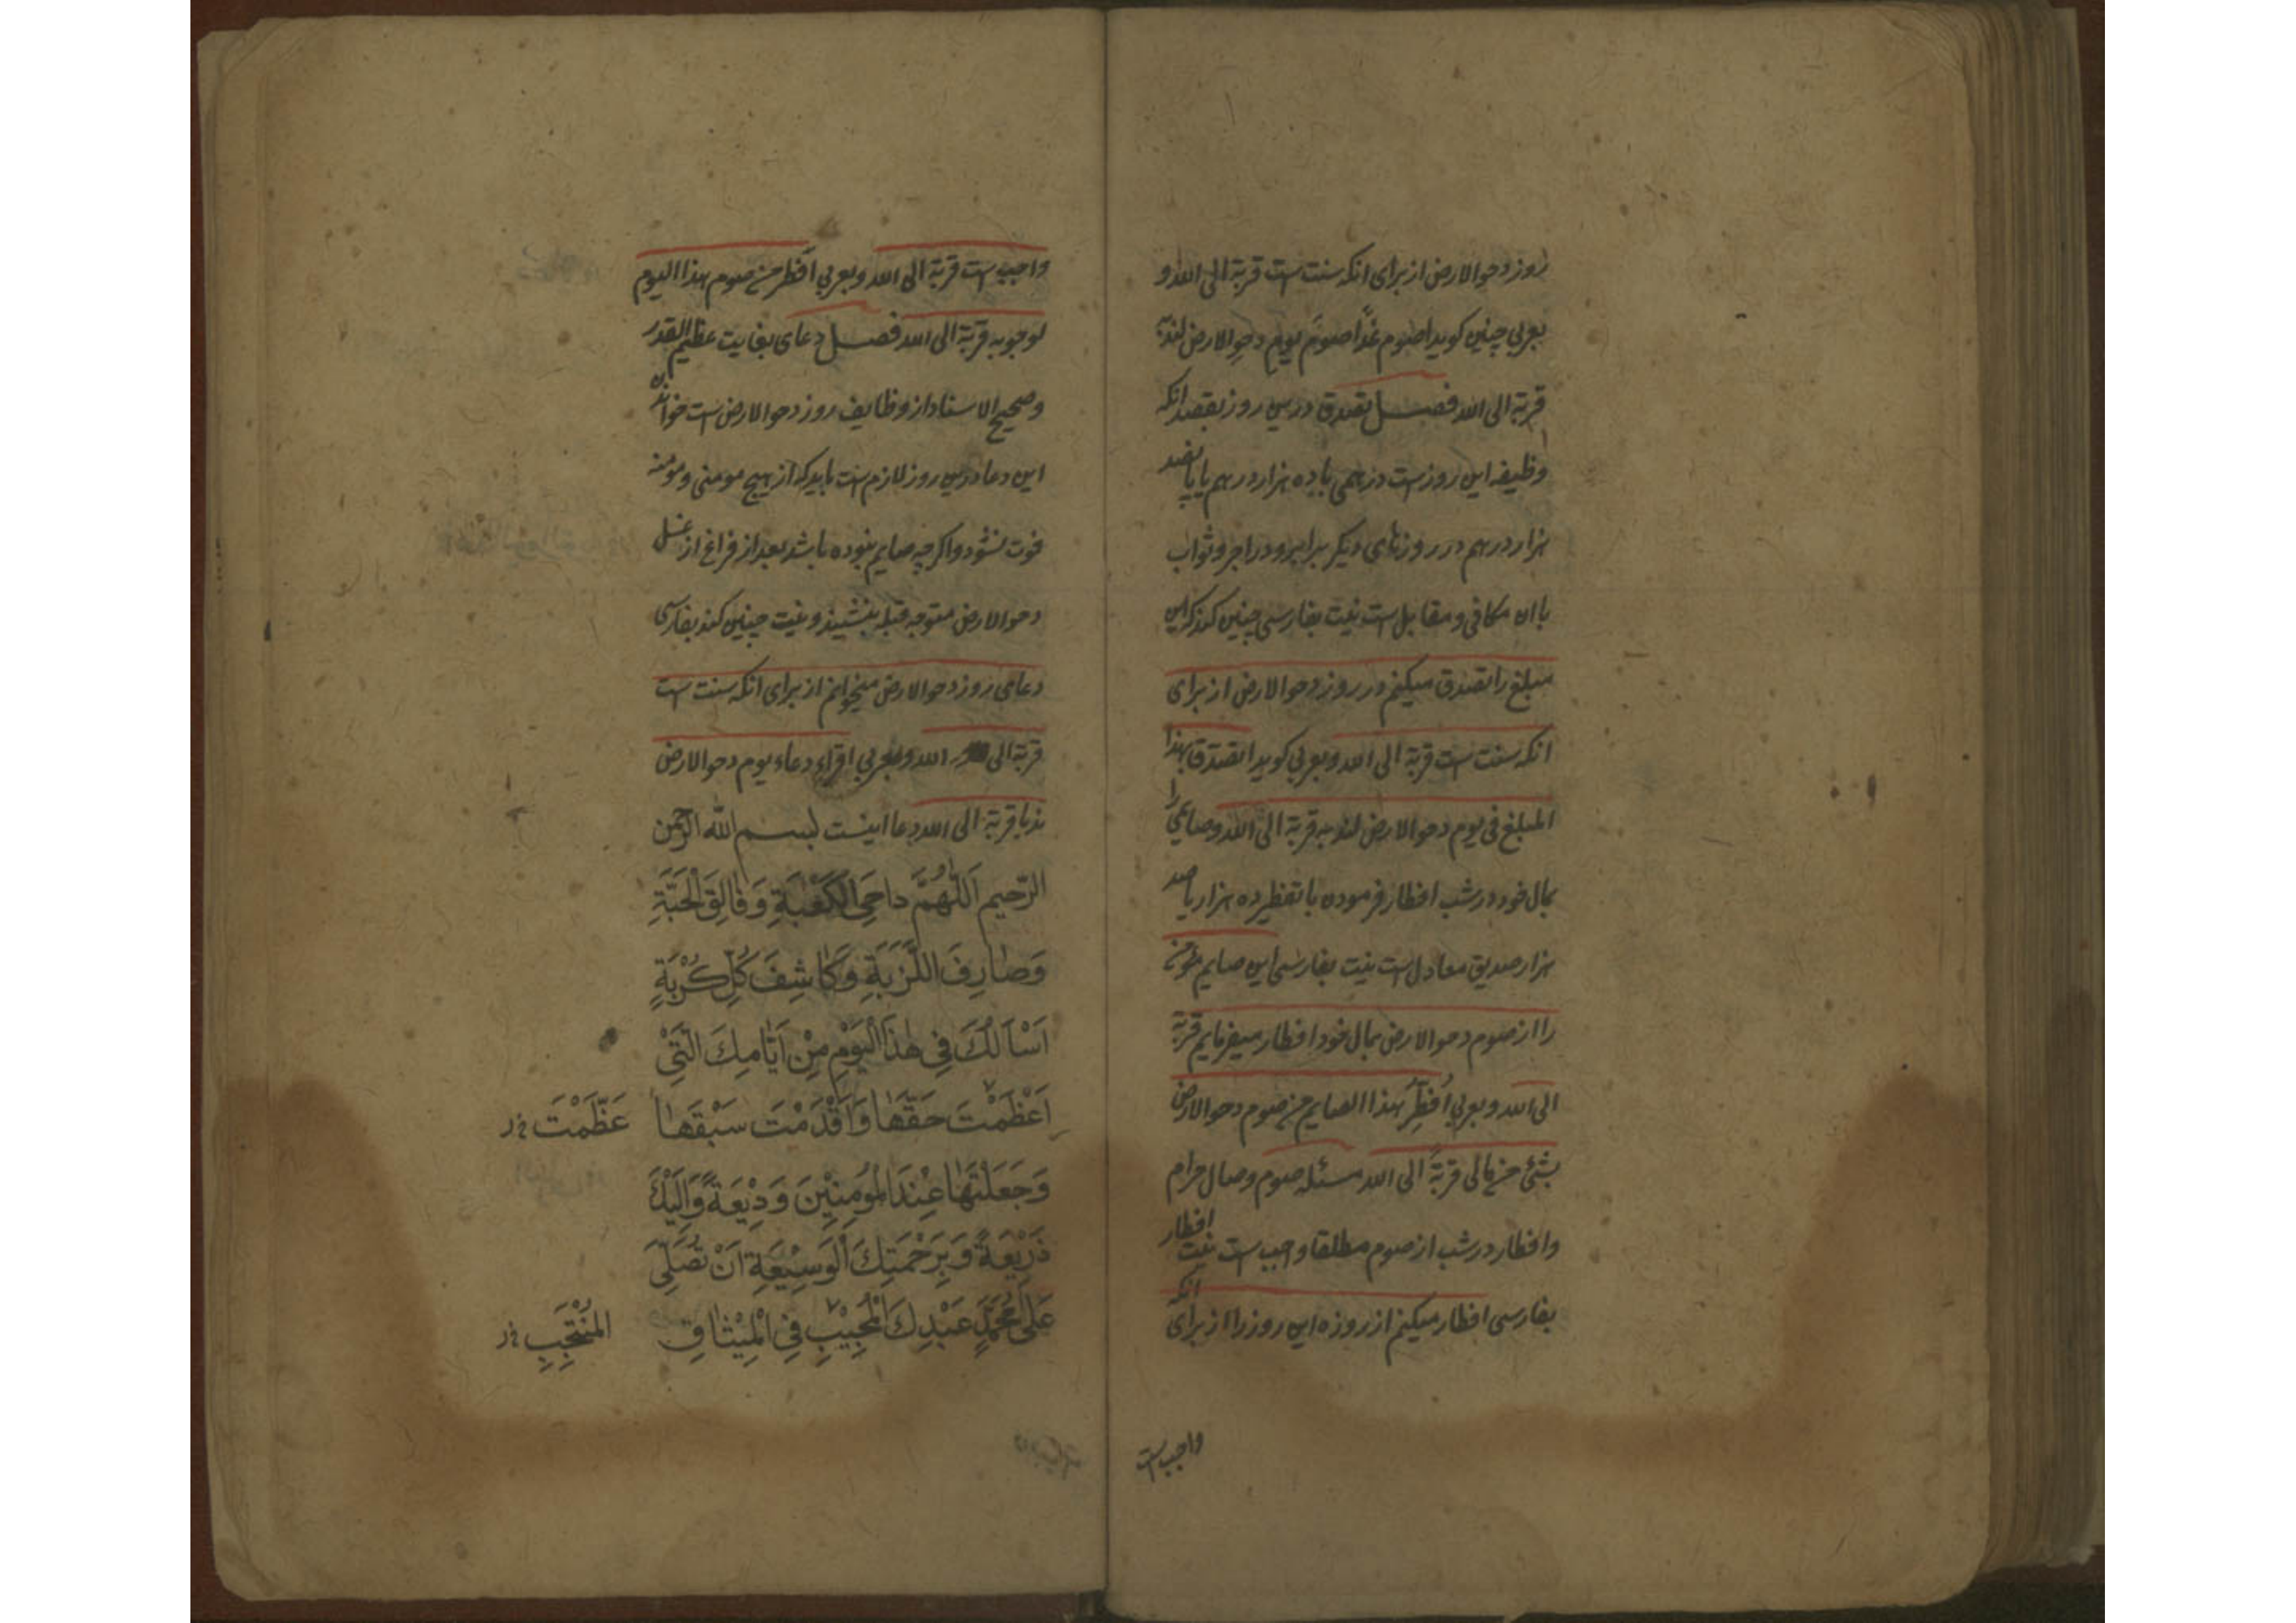 روز دحو الارض از برای انکه سنت است قربة الی الله و
بعربی چنین کوید اصوم غدًا صوم یوم دحو الارض لندبه
قربة الی الله فصل تصدق درین روز بقصد انکه
وظیفه این روز است درهمی با ده هزار درهم یا پانصد
هزار درهم در روزهای دیکر برابر و در اجر و ثواب
با ان مکافی و مقابل است نیت بفارسی چنین کند که این
مبلغ را تصدق میکنم در روز دحو الارض از برای
انکه سنت است قربة الی الله و بعربی کوید اتصدق بهذا
المبلغ فی یوم دحو الارض لندبه قربة الی الله و صایمی را
بمال خود در شب افطار فرمودن با تفطیر ده هزار یا صد
هزار صدیق معادل است نیت بفارسی این صایم مؤمن
را از صوم دحو الارض بمال خود افطار میفرمایم قربة
الی الله و بعربی اُفطِّرُ هذا الصایم من صوم دحو الارض
بشئ من مالی قربةً الی الله مسئله صوم وصال حرام
و افطار در شب از صوم مطلقا واجب است نیت افطار
بفارسی افطار میکنم از روزه این روز را از برای انکه
واجب است
واجب است قربة الی الله و بعربی اُفطر من صوم هذا الیوم
لوجوبه قربة الی الله فصل دعای بغایت عظیم القدر
و صحیح الاسناد از وظایف روز دحو الارض است خواندن
این دعا درین روز لازم است باید که از هیچ مومنی و مومنه
فوت نشود و اکر چه صایم نبوده باشد بعد از فراغ از غسل
دحو الارض متوجه قبله بنشیند و نیت چنین کند بفارسی
دعای روز دحو الارض میخوانم از برای انکه سنت است
قربة الی الله و بعربی اقراء دعاء یوم دحو الارض
ندبا قربة الی الله دعا اینست بسم الله الرحمن
الرّحیم اَللّٰهُمَّ داحِیَ الْکَعْبَةِ وَ فَالِقَ الْحَبَّةِ
وَصٰارِفَ اللَّزْبَةِ وَ کٰاشِفَ کُلِّ کُرْبَةٍ
اَسْاَلُکَ فِی هٰذَا الْیَوْمِ مِنْ اَیّٰامِکَ الَّتِیْ
اَعْظَمْتَ حَقَّهٰا وَ اَقْدَمْتَ سَبْقَهٰا عَظَّمْتَ خ ر
وَ جَعَلْتَهٰا عِنْدَ الْمُؤْمِنِیْنَ وَدِیْعَةً وَ اِلَیْکَ
ذَرِیْعَةً وَ بِرَحْمَتِکَ الْوَسِیْعَةِ اَنْ تُصَلِّیَ
عَلٰی مُحَمَّدٍ عَبْدِکَ الْمُجِیْبِ فِی الْمِیْثٰاقِ الْمُنْتَجَبِ خ ر